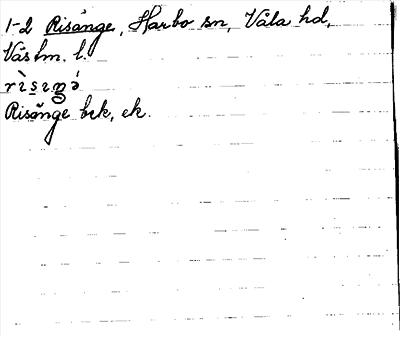 1-2 Risänge, Harbo sn, Våla hd,
Väs lm. l.
Risänge bek, ek.